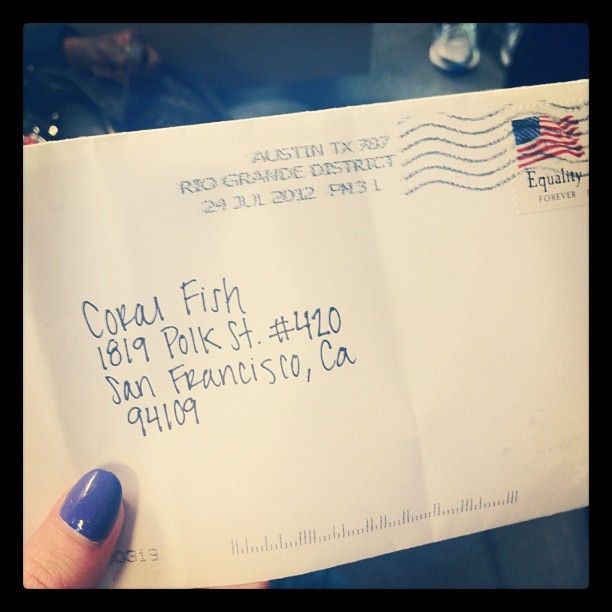 AUSTIN TX 787
RIO GRANDE DISTRICT
24 JUL 2012 PM 3 L
Equality
FOREVER
Coral Fish
1819 Polk St. #420
San Francisco, Ca
94109
0319